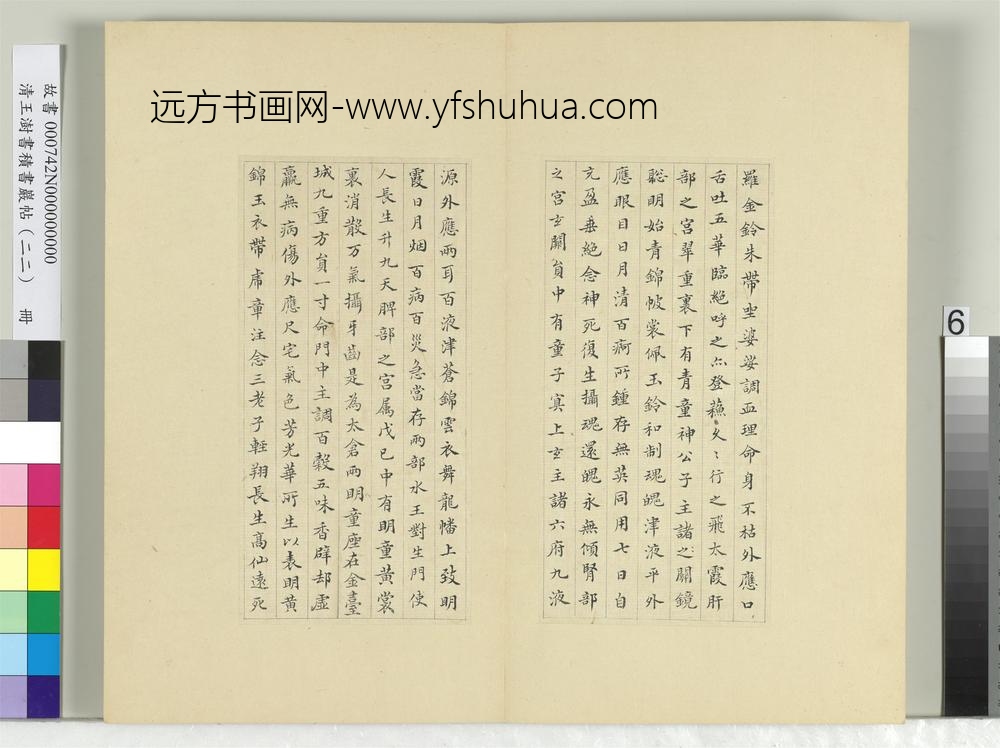 远方书画网-www.yfshuhua.com
羅金鈴朱帶坐婆娑調血理命身不枯外應口
舌吐五華臨絕呼之亦登蘓〻久〻行之飛太霞肝
部之宮翠重裏下有青童神公子主諸之關鏡
聡明始青錦帔裳佩玉鈴和制魂魄津液平外
應眼目日月清百痾所鍾存無英同用七日自
充盈垂絕念神死復生攝魂還魄永無傾腎部
之宮玄關貟中有童子冥上玄主諸六府九液
源外應兩耳百液津蒼錦雲衣舞龍幡上致明
霞日月烟百病百災急當存兩部水王對生門使
人長生升九天脾部之宮属戊己中有明童黃裳
裏消散万氣攝牙齒是為太倉兩明童座在金臺
城九重方貟一寸命門中主調百穀五味香辟却虛
羸無病傷外應尺宅氣色芳光華所生以表明黃
錦玉衣帶虎章注念三老子輕翔長生高仙遠死
故書 000742N000000000
清王澍書積書巖帖(二二) 冊
6